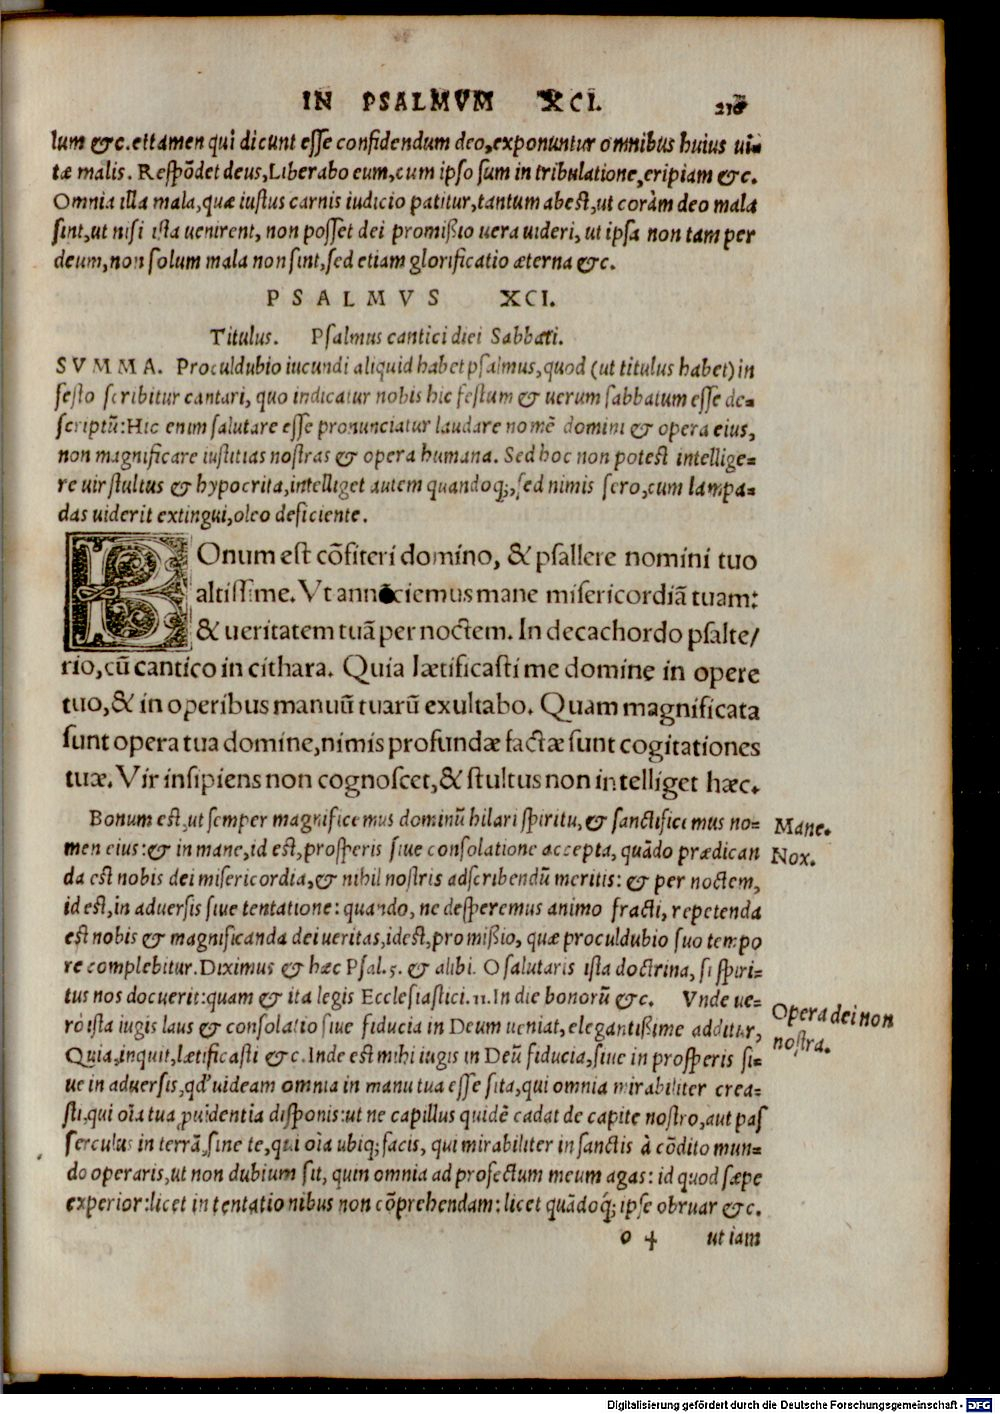 IN PSALMVM XCI.
lum &c. ettamen qui dicunt esse confidendum deo, exponuntur omnibus huius ui-
tæ malis. Respōdet deus, Liberabo eum, cum ipso sum in tribulatione, eripiam &c.
Omnia illa mala, quæ iustus carnis iudicio patitur, tantum abest, ut coràm deo mala
sint, ut nisi ista uenirent, non posset dei promißio uera uideri, ut ipsa non tam per
deum, non solum mala non sint, sed etiam glorificatio æterna &c.
PSALMVS XCI.
Titulus. Psalmus cantici diei Sabbati.
SVMMA. Proculdubio iucundi aliquid habet psalmus, quod (ut titulus habet) in
festo scribitur cantari, quo indicatur nobis hic festum & uerum sabbatum esse de-
scriptū: Hic enim salutare esse pronunciatur laudare nomē domini & opera eius,
non magnificare iustitias nostras & opera humana. Sed hoc non potest intellige-
re uir stultus & hypocrita, intelliget autem quandoq;, sed nimis sero, cum lampa-
das uiderit extingui, oleo deficiente.
BOnum est cōfiteri domino, & psallere nomini tuo
altissime. Vt annūciemus mane misericordiā tuam:
& ueritatem tuā per noctem. In decachordo psalte/
rio, cū cantico in cithara. Quia lætificasti me domine in opere
tuo, & in operibus manuū tuarū exultabo. Quam magnificata
sunt opera tua domine, nimis profundæ factæ sunt cogitationes
tuæ. Vir insipiens non cognoscet, & stultus non intelliget hæc.
Bonum est, ut semper magnificemus dominū hilari spiritu, & sanctificemus no-
men eius: & in mane, id est, prosperis siue consolatione accepta, quādo prædican
da est nobis dei misericordia, & nihil nostris adscribendū meritis: & per noctem,
id est, in aduersis siue tentatione: quando, ne desperemus animo fracti, repetenda
est nobis & magnificanda dei ueritas, idest, promißio, quæ proculdubio suo tempo
re complebitur. Diximus & hæc Psal. 5. & alibi. O salutaris ista doctrina, si spiri-
tus nos docuerit: quam & ita legis Ecclesiastici. 11. In die bonorū &c. Vnde ue-
rò ista iugis laus & consolatio siue fiducia in Deum ueniat, elegantißime additur,
Quia, inquit, lætificasti &c. Inde est mihi iugis in Deū fiducia, siue in prosperis si-
ue in aduersis, qd' uideam omnia in manu tua esse sita, qui omnia mirabiliter crea-
sti, qui oīa tua ꝓuidentia disponis: ut ne capillus quidē cadat de capite nostro, aut pas
serculus in terrā, sine te, qui oīa ubiq; facis, qui mirabiliter in sanctis à cōdito mun-
do operaris, ut non dubium sit, quin omnia ad profectum meum agas: id quod sæpe
experior: licet in tentationibus non cōprehendam: licet quādoq́; ipse obruar &c.
o 4 ut iam
Mane.
Nox.
Opera dei non
nostra.
Digitalisierung gefördert durch die Deutsche Forschungsgemeinschaft - DFG